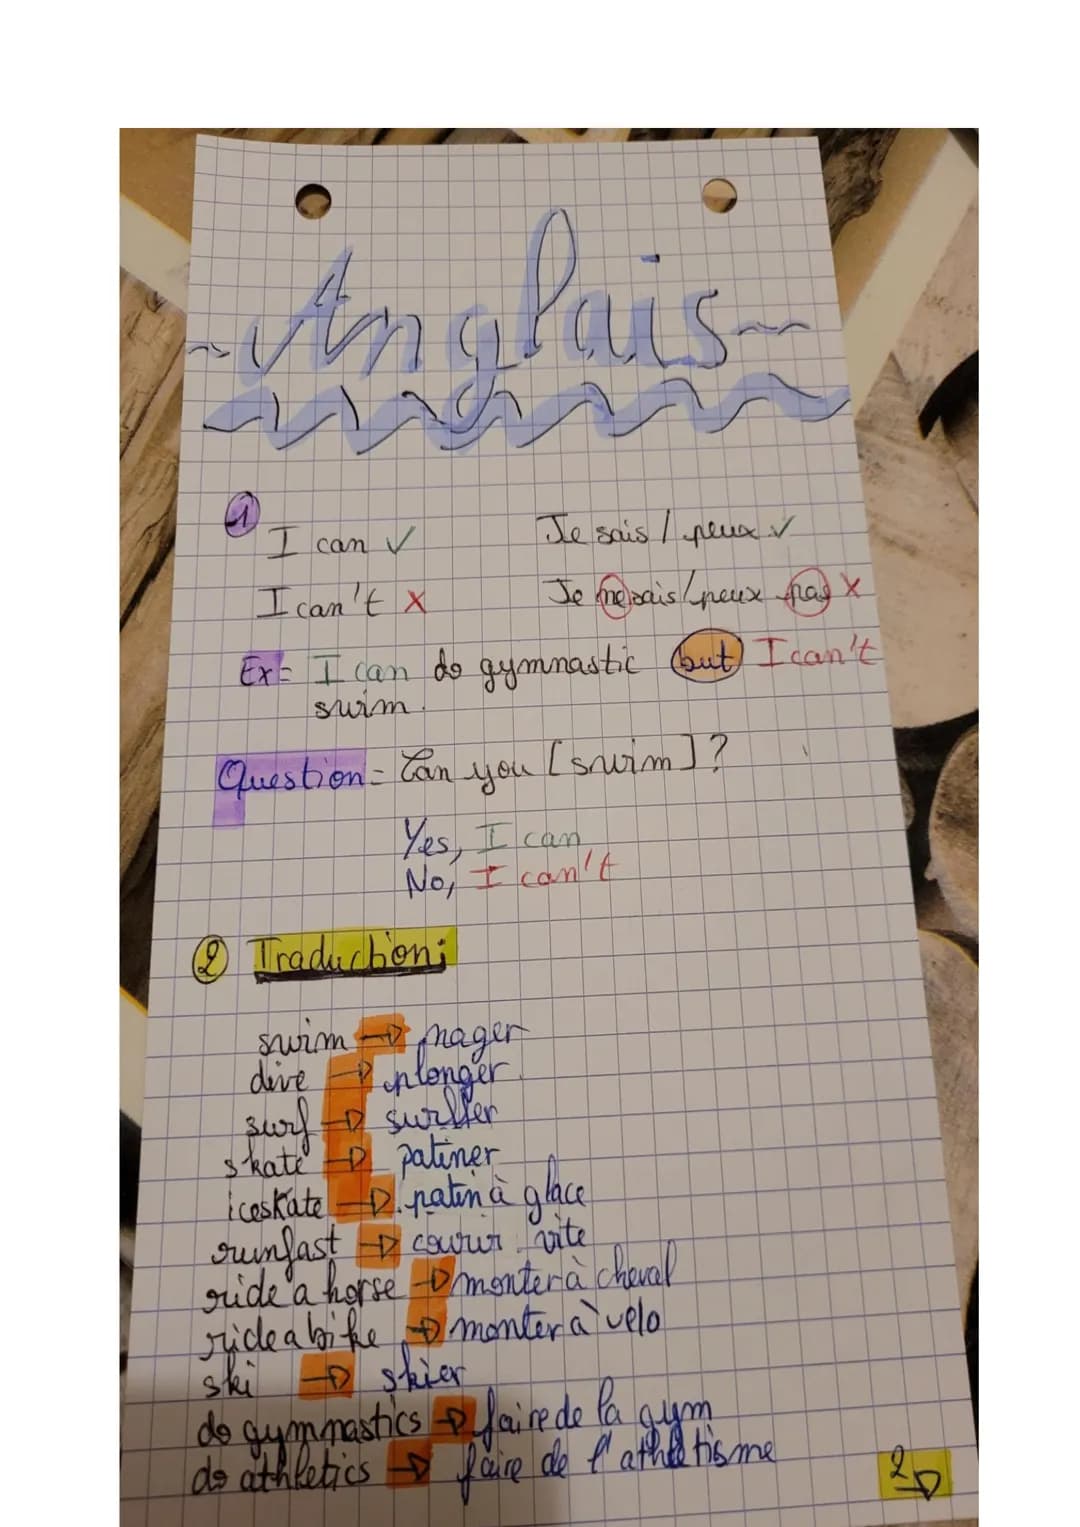 ~Anglais~
1
I can ✓ Je sais / peux ✓
I can't X Je ne sais/peux pas X
Ex= I can do gymnastic but I can't
swim.
Question = Can you [swim]?
Yes, I can
No, I can't
2 Traduction:
swim → nager
dive → plonger
surf → surffer
skate → patiner
iceskate → patin à glace
runfast → courir vite
ride a horse → monter à cheval
ride a bike → monter à vélo
ski → skier
do gymnastics → faire de la gym
do athletics → faire de l'athlétisme
2→